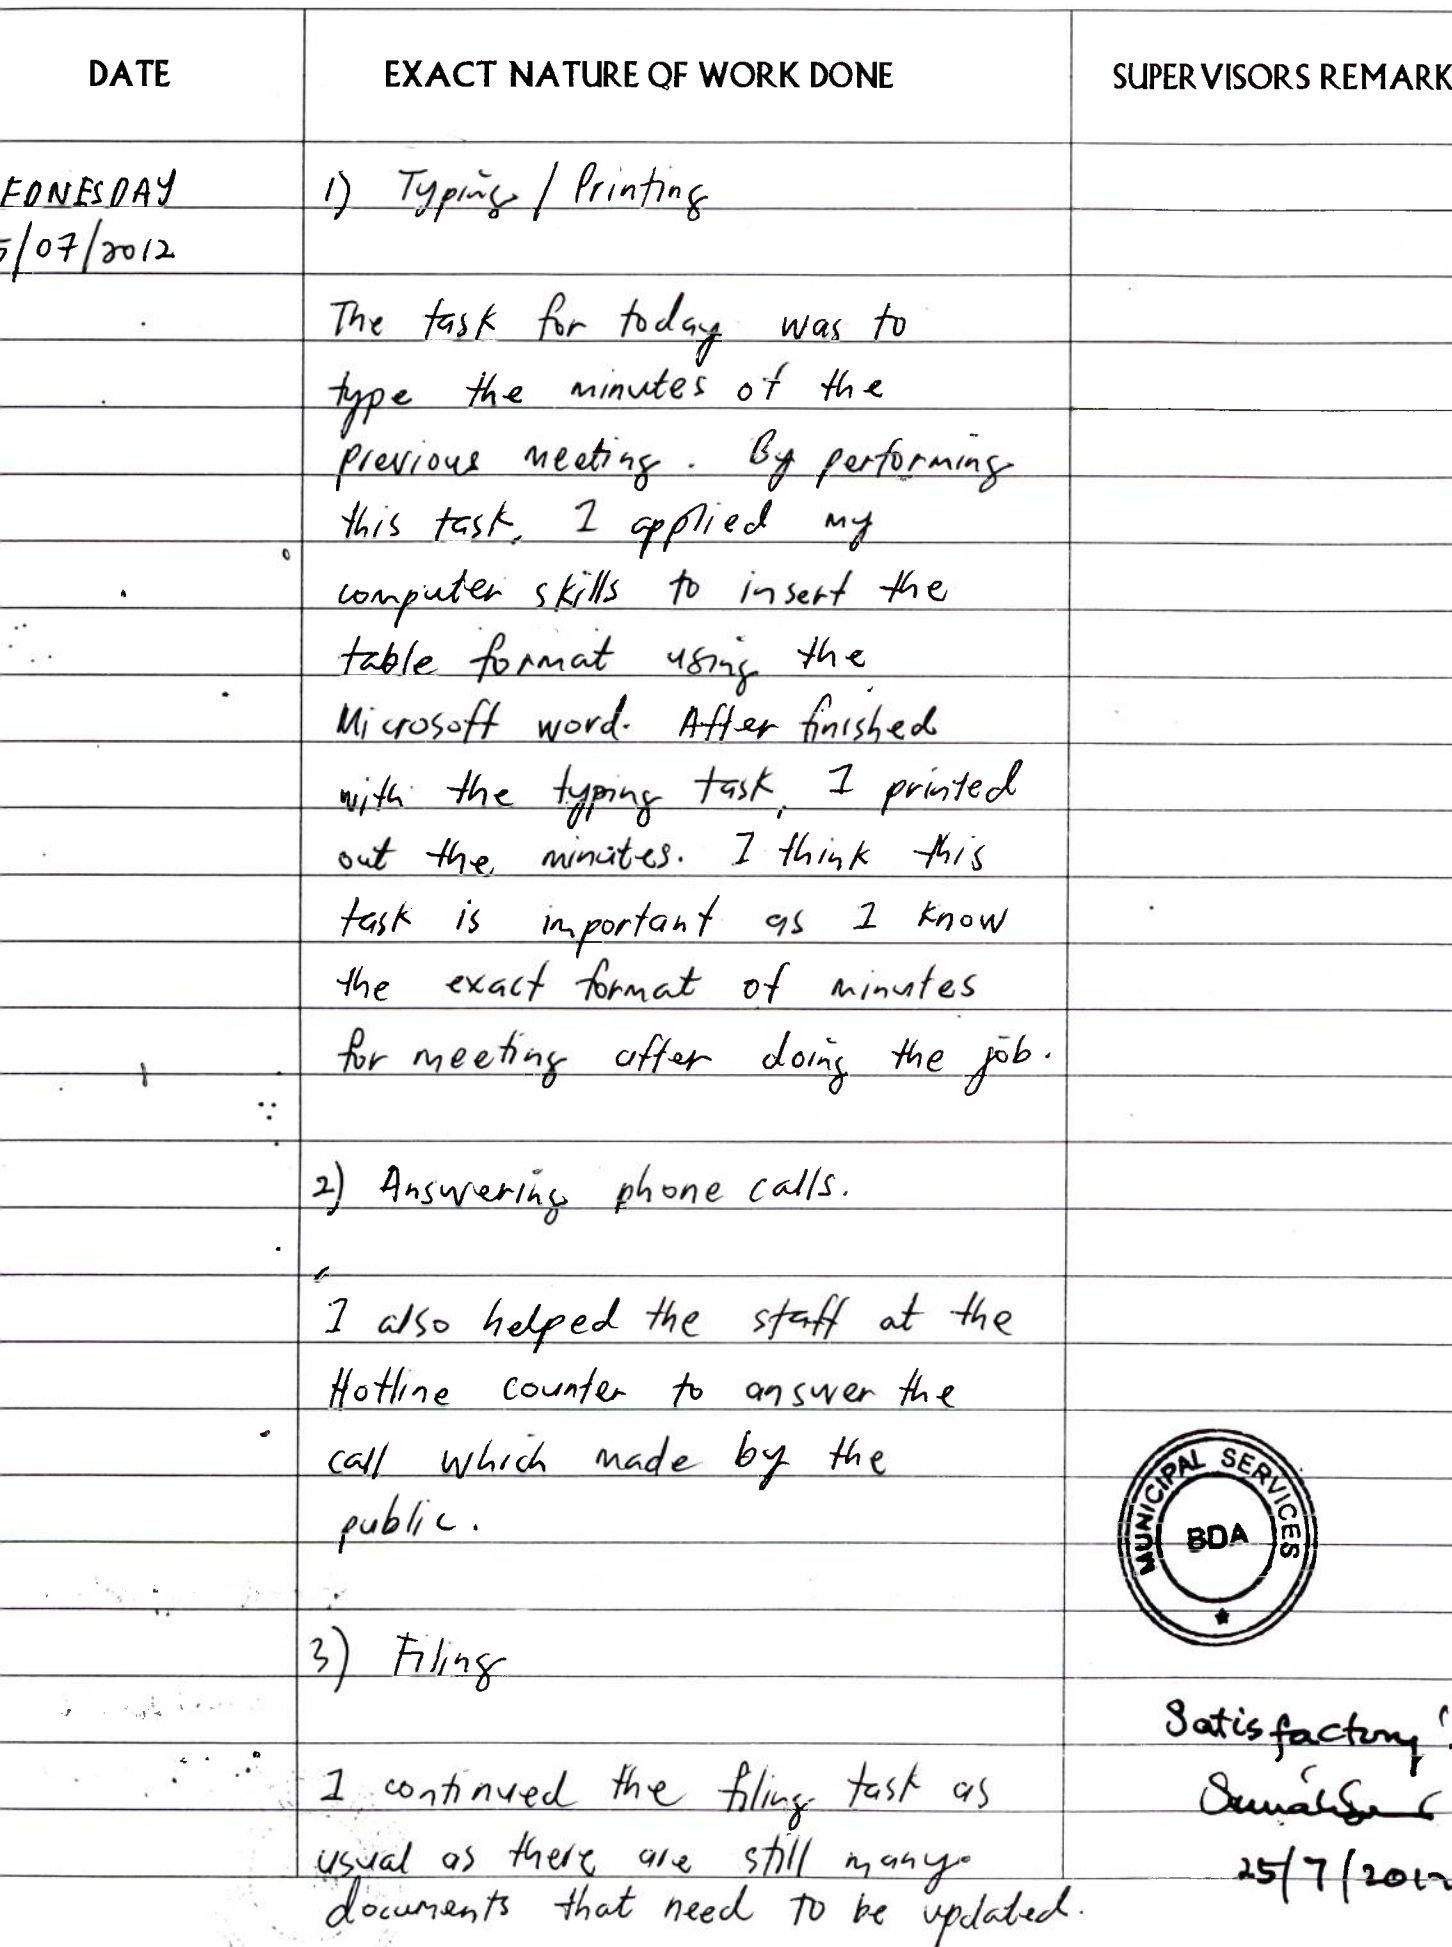 DATE EXACT NATURE OF WORK DONE SUPERVISORS REMARK
EDNESDAY 1) Typing / Printing
5/07/2012
The task for today was to
type the minutes of the
previous meeting. By performing
this task, I applied my
computer skills to insert the
table format using the
Microsoft word. After finished
with the typing task, I printed
out the minutes. I think this
task is important as I know
the exact format of minutes
for meeting after doing the job.
2) Answering phone calls.
I also helped the staff at the
Hotline counter to answer the
call which made by the
public.
MUNICIPAL SERVICES
BDA
3) Filing
Satisfactory
I continued the filing task as
usual as there are still many
25/7/2012
documents that need to be updated.